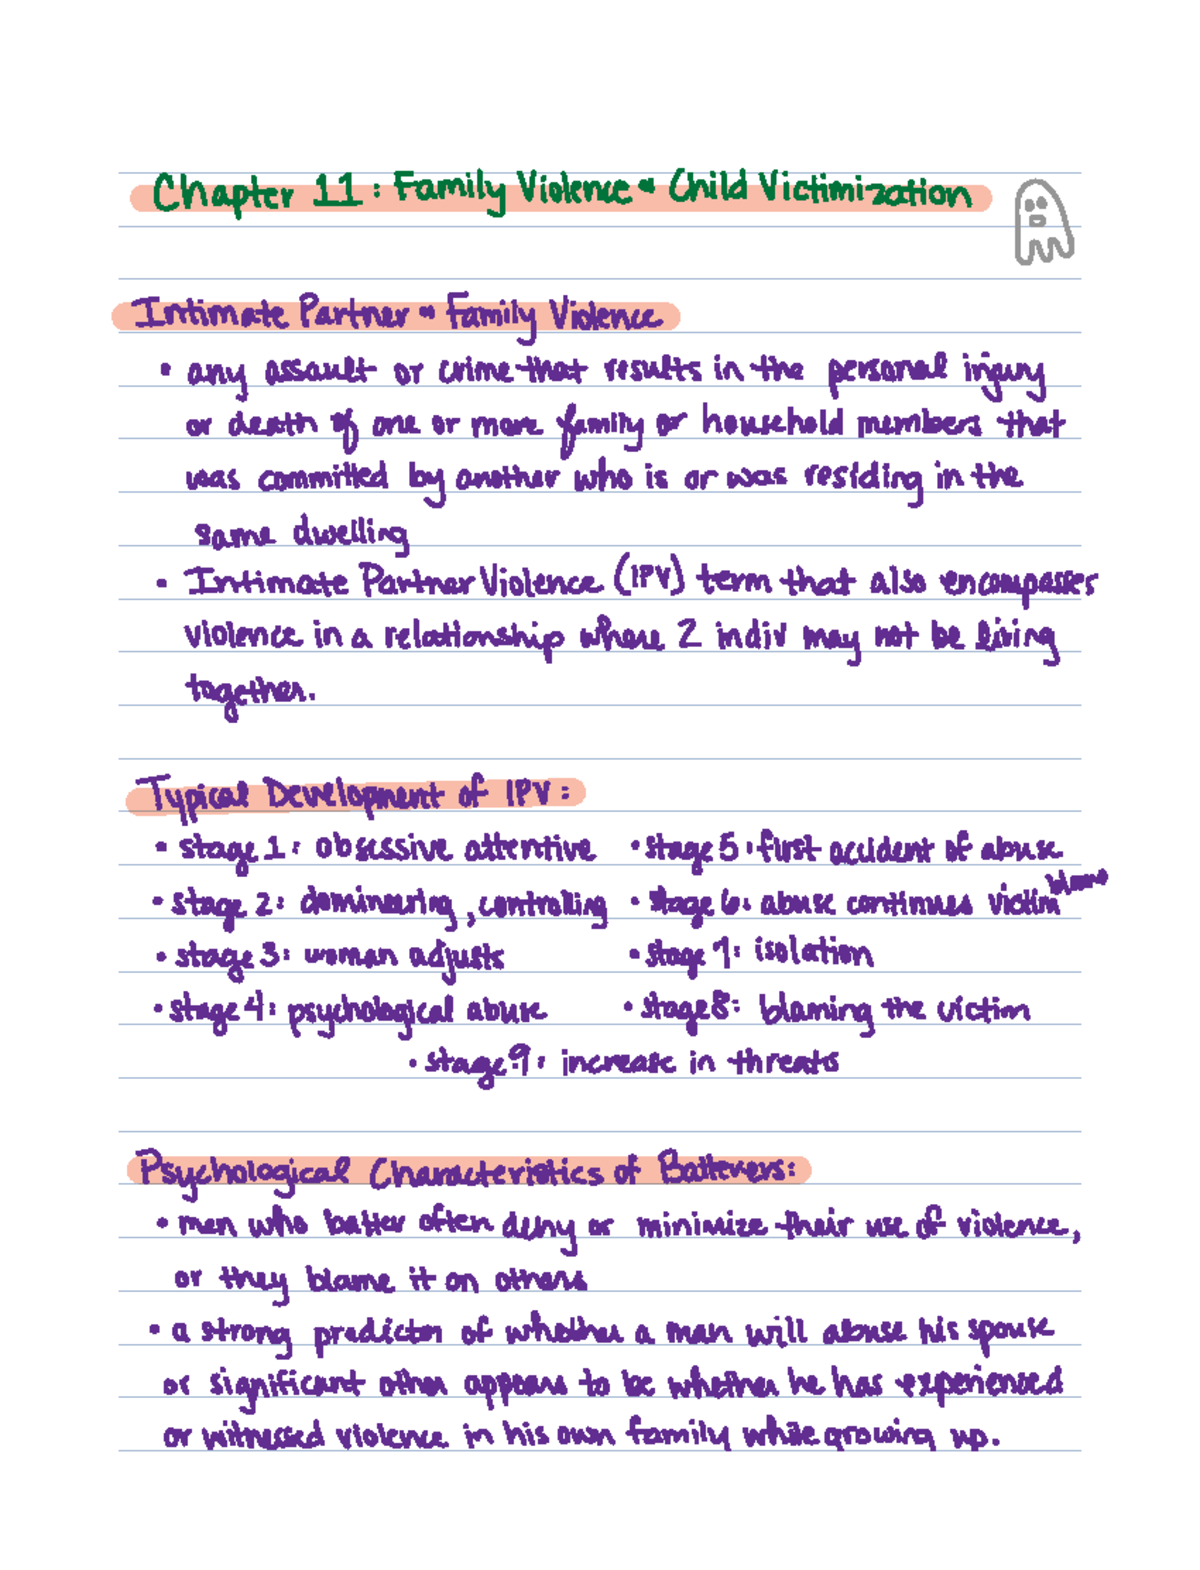 Chapter 11: Family Violence & Child Victimization
Intimate Partner & Family Violence
• any assault or crime that results in the personal injury
or death of one or more family or household members that
was committed by another who is or was residing in the
same dwelling
• Intimate Partner Violence (IPV) term that also encompasses
violence in a relationship where 2 indiv may not be living
together.
Typical Development of IPV:
• stage 1: obsessive attentive
• stage 2: domineering, controlling
• stage 3: woman adjusts
• stage 4: psychological abuse
• stage 5: first accident of abuse
• stage 6: abuse continues victim blame
• stage 7: isolation
• stage 8: blaming the victim
• stage 9: increase in threats
Psychological Characteristics of Batterers:
• men who batter often deny or minimize their use of violence,
or they blame it on others
• a strong predictor of whether a man will abuse his spouse
or significant other appears to be whether he has experienced
or witnessed violence in his own family while growing up.